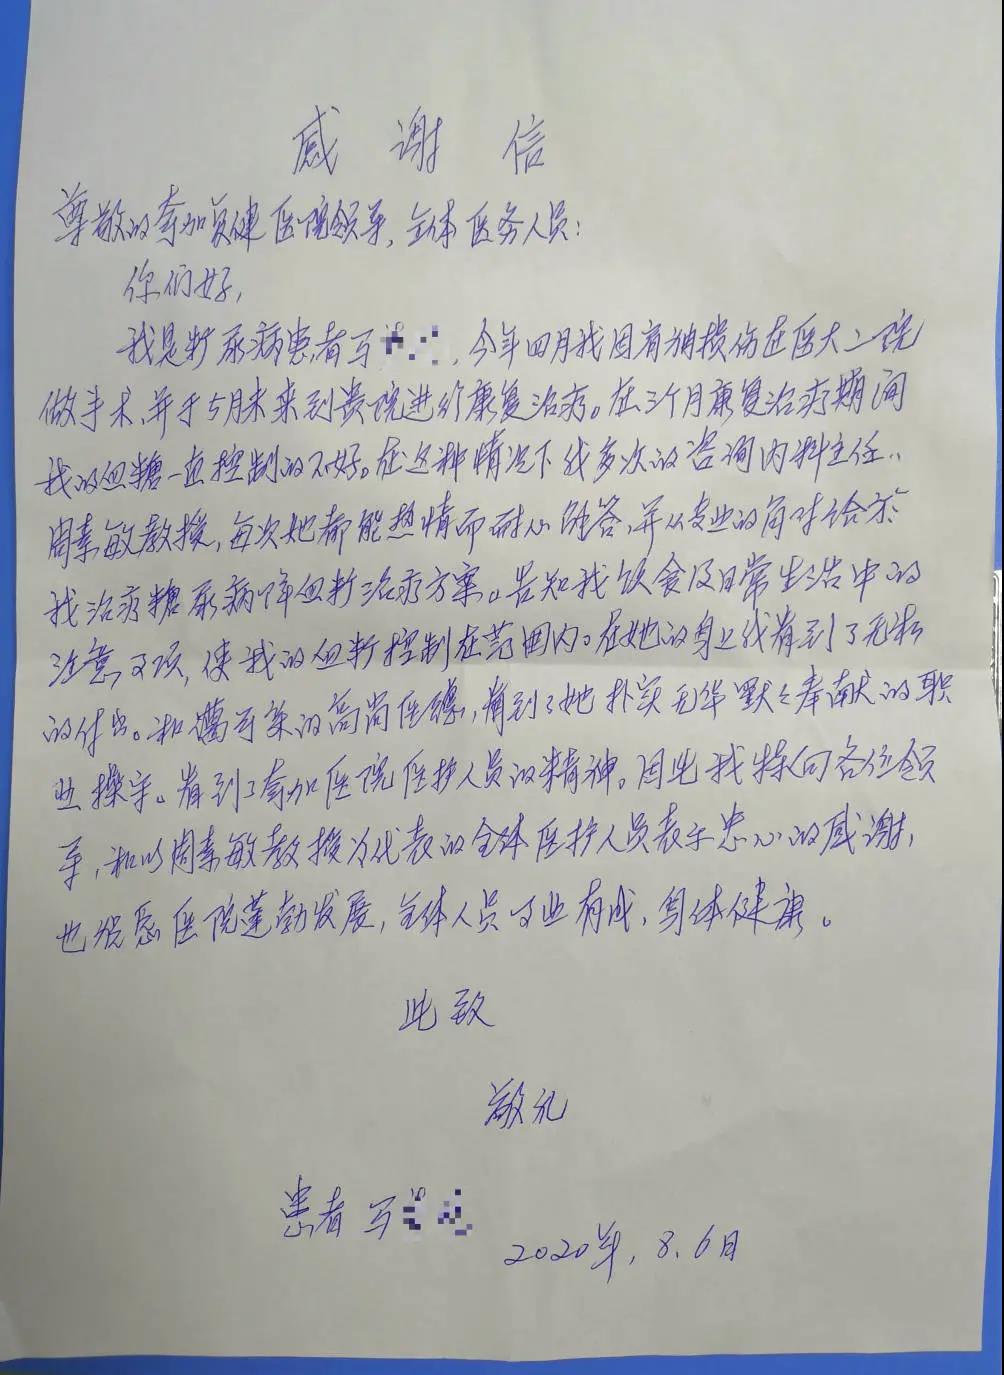 感谢信
尊敬的奈加贝健医院领导,全体医务人员:
你们好,
我是糖尿病患者,今年四月我因肩袖损伤在医大二院
做手术,并于5月末来到贵院进行康复治疗。在3个月康复治疗期间
我的血糖一直控制的不好。在这种情况下我多次的咨询内科主任..
周素敏教授,每次她都能热情而耐心解答,并从专业的角对给示
我治疗糖尿病降血糖治疗方案。告知我饮食及日常生活中的
注意事项,使我的血糖控制在范围内。在她的身上我看到了无私
的付出。和高尚医德,看到了她朴实无华默々奉献的职
业操守。看到了奈加医院医护人员的精神。因此我特向各位领
导,和以周素敏教授为代表的全体医护人员表示忠心的感谢,
也祝愿医院蓬勃发展,全体人员事业有成,身体健康。
此致
敬礼
患者
2020年,8.6日